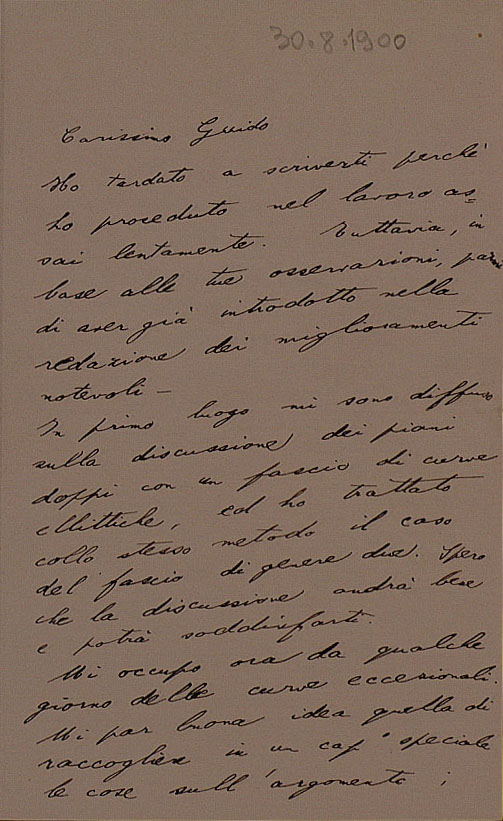 30.8.1900
Carissimo Guido
Ho tardato a scriverti perchè
ho proceduto nel lavoro as=
sai lentamente. Tuttavia, in
base alle tue osservazioni, parmi
di aver già introdotto nella
redazione dei miglioramenti
notevoli —
In primo luogo mi sono diffuso
sulla discussione dei piani
doppi con un fascio di curve
ellittiche, ed ho trattato
collo stesso metodo il caso
del fascio di genere due. Spero
che la discussione andrà bene
e potrà soddisfarti.
Mi occupo ora da qualche
giorno delle curve eccezionali.
Mi par buona idea quella di
raccogliere in un cap° speciale
le cose sull'argomento;